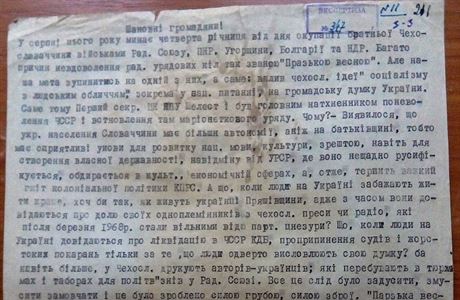 ЕКСПЕРТИЗА
№ 11
Шановні громадяни!
У серпні цього року минає четверта річниця від дня окупації братньої Чехо-
словаччини військами Рад. Союзу, ПНР, Угорщини, Болгарії та НДР. Багато
причин невдоволення рад. урядових кіл так званою "Празькою весною". Але на-
ша мета зупинитись на одній з них, а саме: вплив чехосл. ідеї соціалізму
з людським обличчям, зокрема у нац. питанні, на громадську думку України.
Саме тому Перший секр. ЦК КПУ Шелест і був головним натхненником понево-
лення ЧССР і встановлення там маріонеткового уряду. Чому?- Виявилося, що
укр. населення Словаччини має більше автономії, аніж на батьківщині, тобто
має сприятливі умови для розвитку нац. мови, культури, зрештою, навіть для
створення власної державності, навідміну від УРСР, де воно нещадно русифі-
кується, обдирається в культ., економічній сферах, а, отже, терпить важкий
гніт колоніальної політики КПРС. А що, коли люди на Україні забажають жи-
ти краще, хоч би так, як живуть українці Пряшівщини, адже з часом вони до-
відаються про долю своїх одноплемінників з чехосл. преси чи радіо, які
після березня 1968р. стали вільними від парт. цензури? Що, коли люди на
Україні довідаються про ліквідацію в ЧССР КДБ, припинення судів і жорс-
токих покарань тільки за те, що люди одверто висловлюють свою думку? Ба
навіть більше, у Чехосл. друкують авторів-українців, які перебувають в тюрмах
і таборах для політв'язнів у Рад. Союзі. Все це слід було задусити, зму-
сити замовчати і це було зроблено силою грубою, силою зброї. "Празька вес-